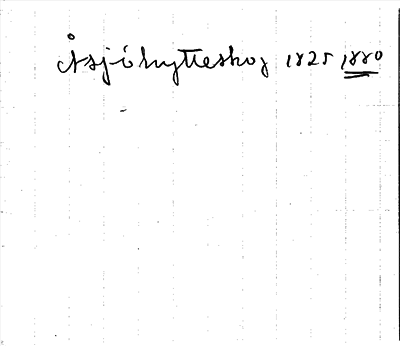 Åsjöhytteskog 1825 1880